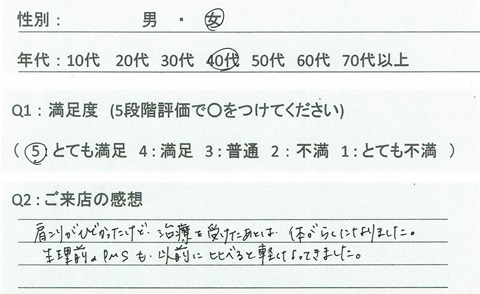 性別： 男 ・ 女
年代：10代 20代 30代 40代 50代 60代 70代以上
Q1：満足度 (5段階評価で〇をつけてください)
( 5：とても満足 4：満足 3：普通 2：不満 1：とても不満 )
Q2：ご来店の感想
肩こりがひどかったけど、治療を受けたあとは、体がらくになりました。
生理前のPMSも、以前にくらべると軽くなってきました。